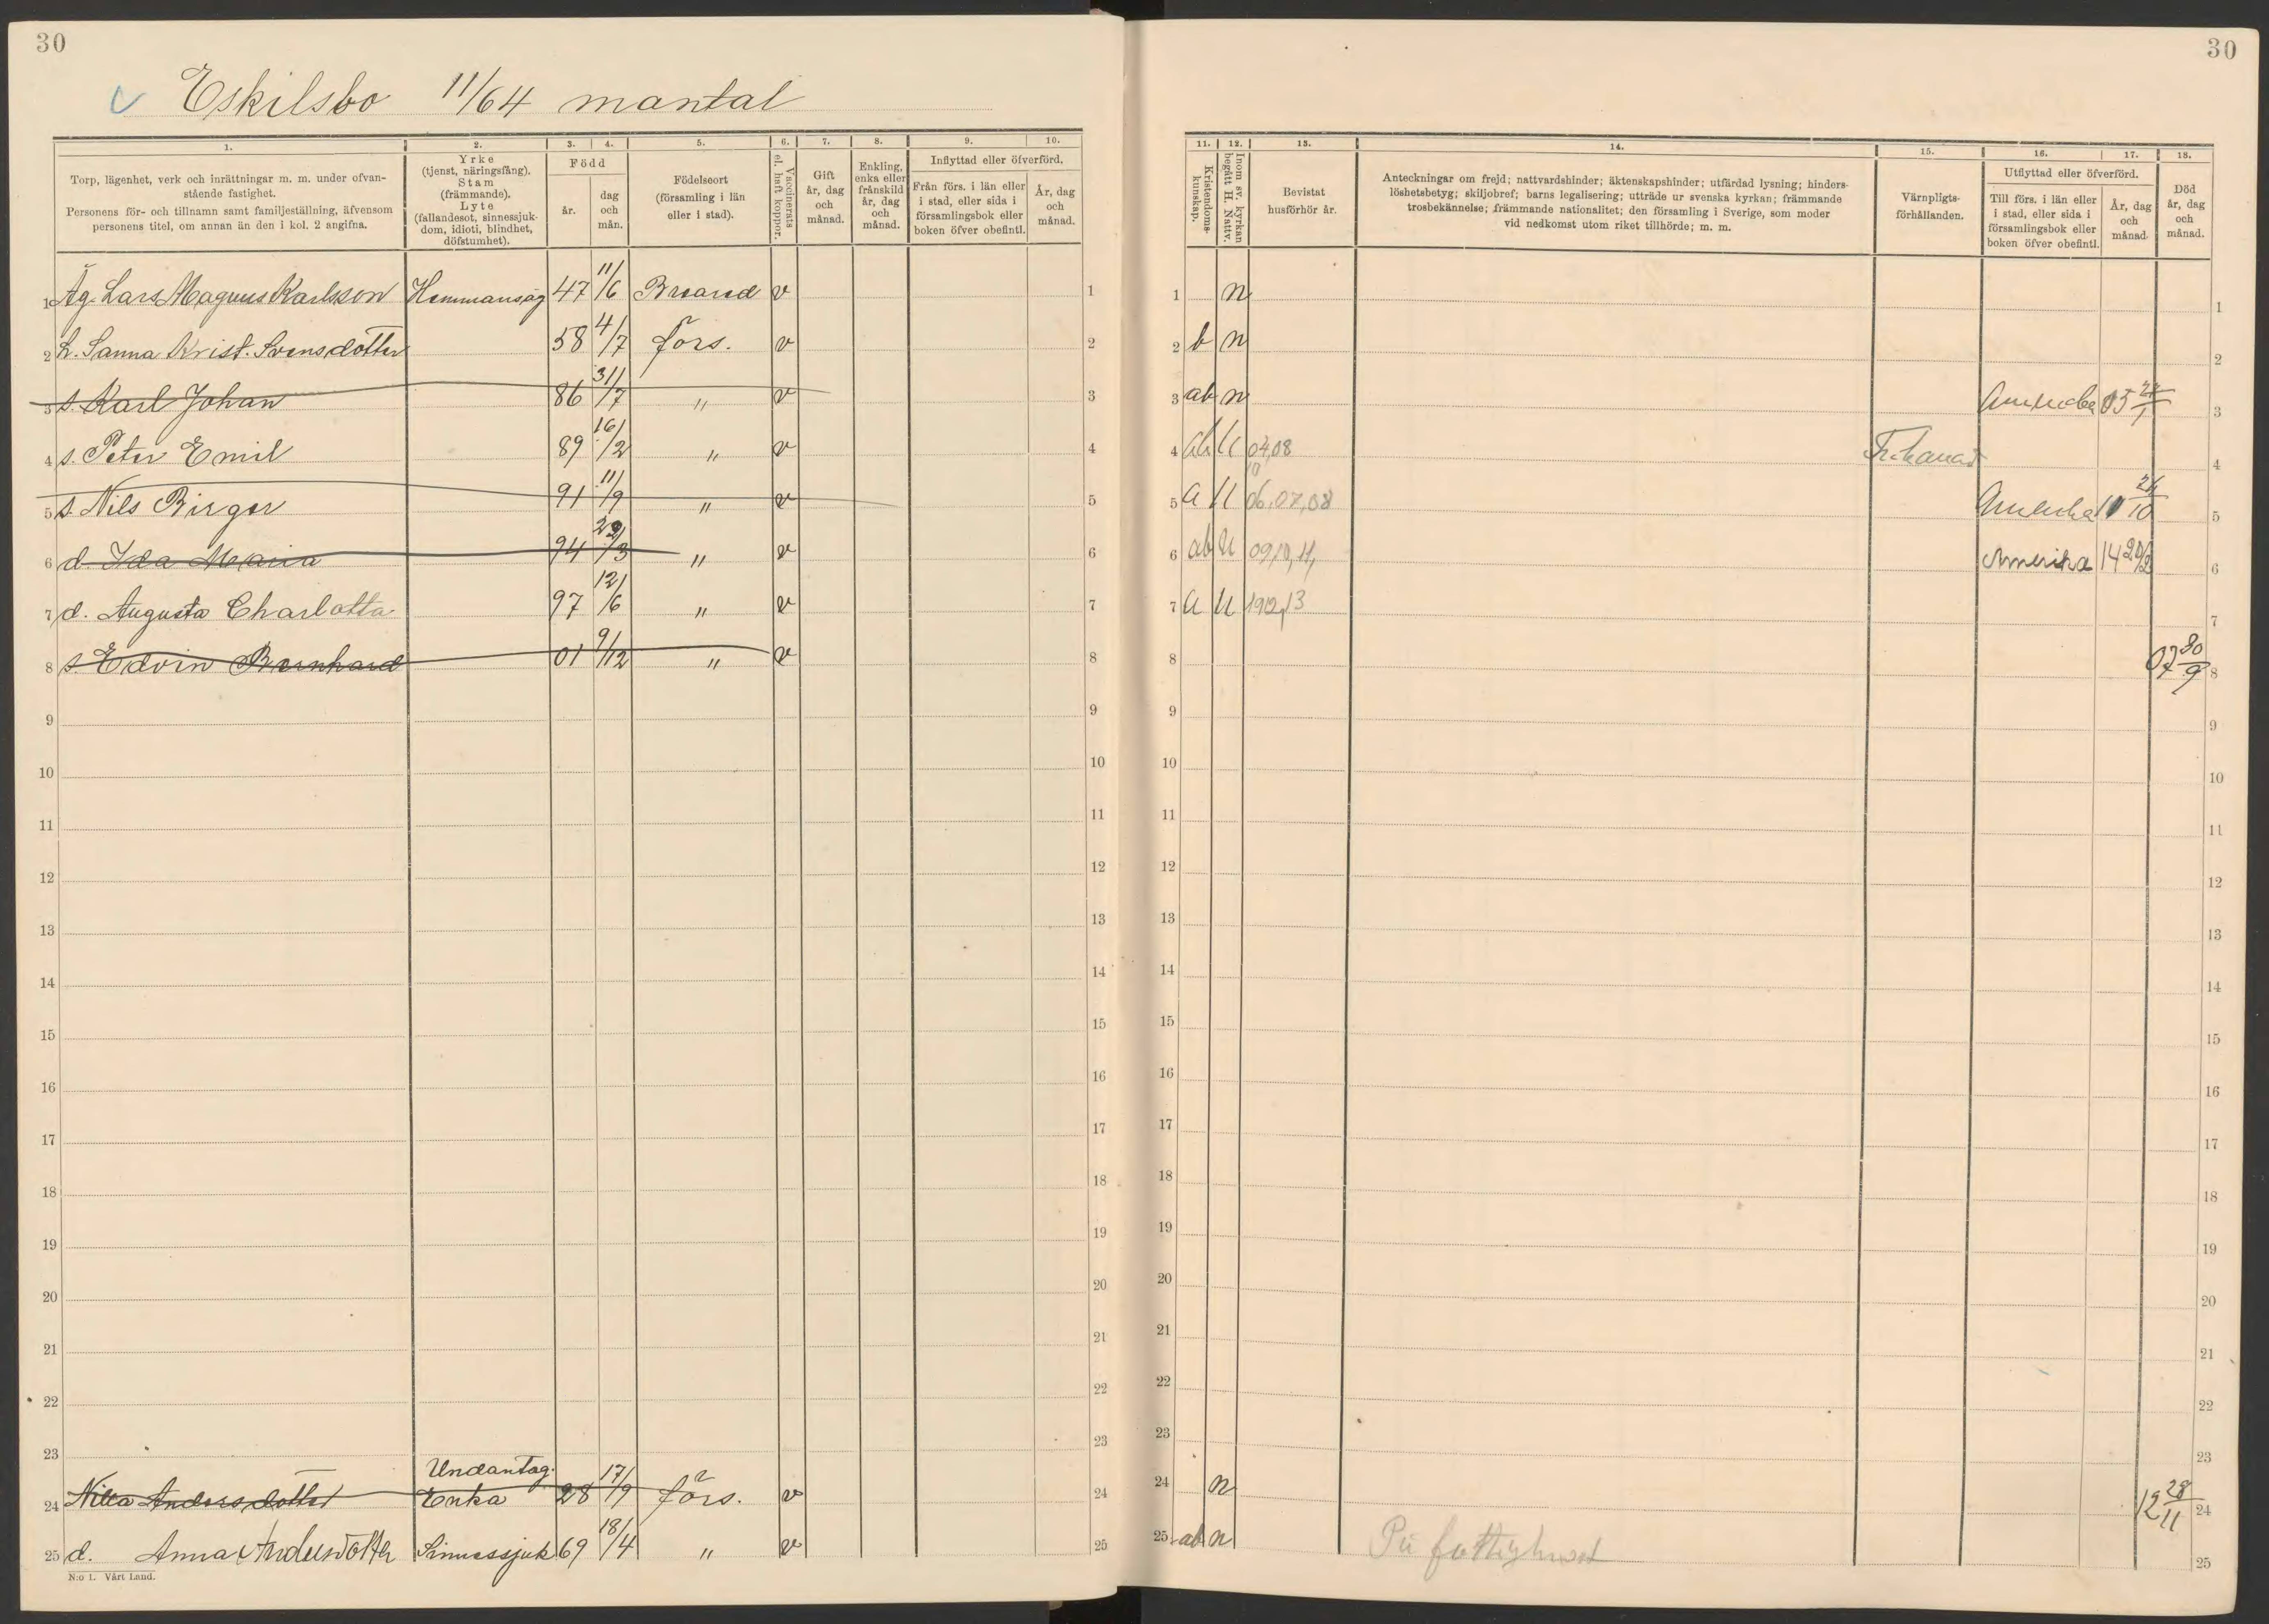 30
Eskilsbo 11/64 mantal
1. 2. 3. 4. 5. 6. 7. 8. 9. 10.
Torp, lägenhet, verk och inrättningar m. m. under ofvan-
stående fastighet.
Personens för- och tillnamn samt familjeställning, äfvensom
personens titel, om annan än den i kol. 2 angifna.
Yrke
(tjenst, näringsfång).
Stam
(främmande).
Lyte
(fallandesot, sinnessjuk-
dom, idioti, blindhet,
döfstumhet).
Född
år.
dag
och
mån.
Födelseort
(församling i län
eller i stad).
Vaccinerats
el. haft koppor.
Gift
år, dag
och
månad.
Enkling,
enka eller
frånskild
år, dag
och
månad.
Inflyttad eller öfverförd.
Från förs. i län eller
i stad, eller sida i
församlingsbok eller
boken öfver obefintl.
År, dag
och
månad.
1 Äg. Lars Magnus Karlsson Hemmansäg 47 11/6 Breared v 1
2 h. Sanna Krist. Svensdotter 58 4/7 förs. v 2
3 s. Karl Johan 86 31/7 " v 3
4 s. Peter Emil 89 16/2 " v 4
5 s. Nils Birger 91 11/9 " v 5
6 d. Ida Maria 94 29/3 " v 6
7 d. Augusta Charlotta 97 12/6 " v 7
8 s. Edvin Bernhard 01 9/12 " v 8
9 9
10 10
11 11
12 12
13 13
14 14
15 15
16 16
17 17
18 18
19 19
20 20
21 21
22 22
23 23
Undantag.
24 Nilla Andersdotter Enka 28 17/9 förs. v 24
25 d. Anna Andersdotter Sinnessjuk 69 18/4 " v 25
N:o 1. Vårt Land.
30
11. 12. 13. 14. 15. 16. 17. 18.
Kristendoms-
kunskap.
Inom sv. kyrkan
begått H. Nattv.
Bevistat
husförhör år.
Anteckningar om frejd; nattvardshinder; äktenskapshinder; utfärdad lysning; hinders-
löshetsbetyg; skiljobref; barns legalisering; utträde ur svenska kyrkan; främmande
trosbekännelse; främmande nationalitet; den församling i Sverige, som moder
vid nedkomst utom riket tillhörde; m. m.
Värnpligts-
förhållanden.
Utflyttad eller öfverförd.
Till förs. i län eller
i stad, eller sida i
församlingsbok eller
boken öfver obefintl.
År, dag
och
månad.
Död
år, dag
och
månad.
1 n 1
2 b n 2
3 ab n Amerika 05 3
4 ab u 04,08 4
10
5 a u 06,07,08 Amerika 5
6 ab u 09,10,11, Amerika 14 20/2 6
7 a u 1912,13 7
8 07 30/9 8
9 9
10 10
11 11
12 12
13 13
14 14
15 15
16 16
17 17
18 18
19 19
20 20
21 21
22 22
23 23
24 n 12 28/11 24
25 ab n På fattighuset 25